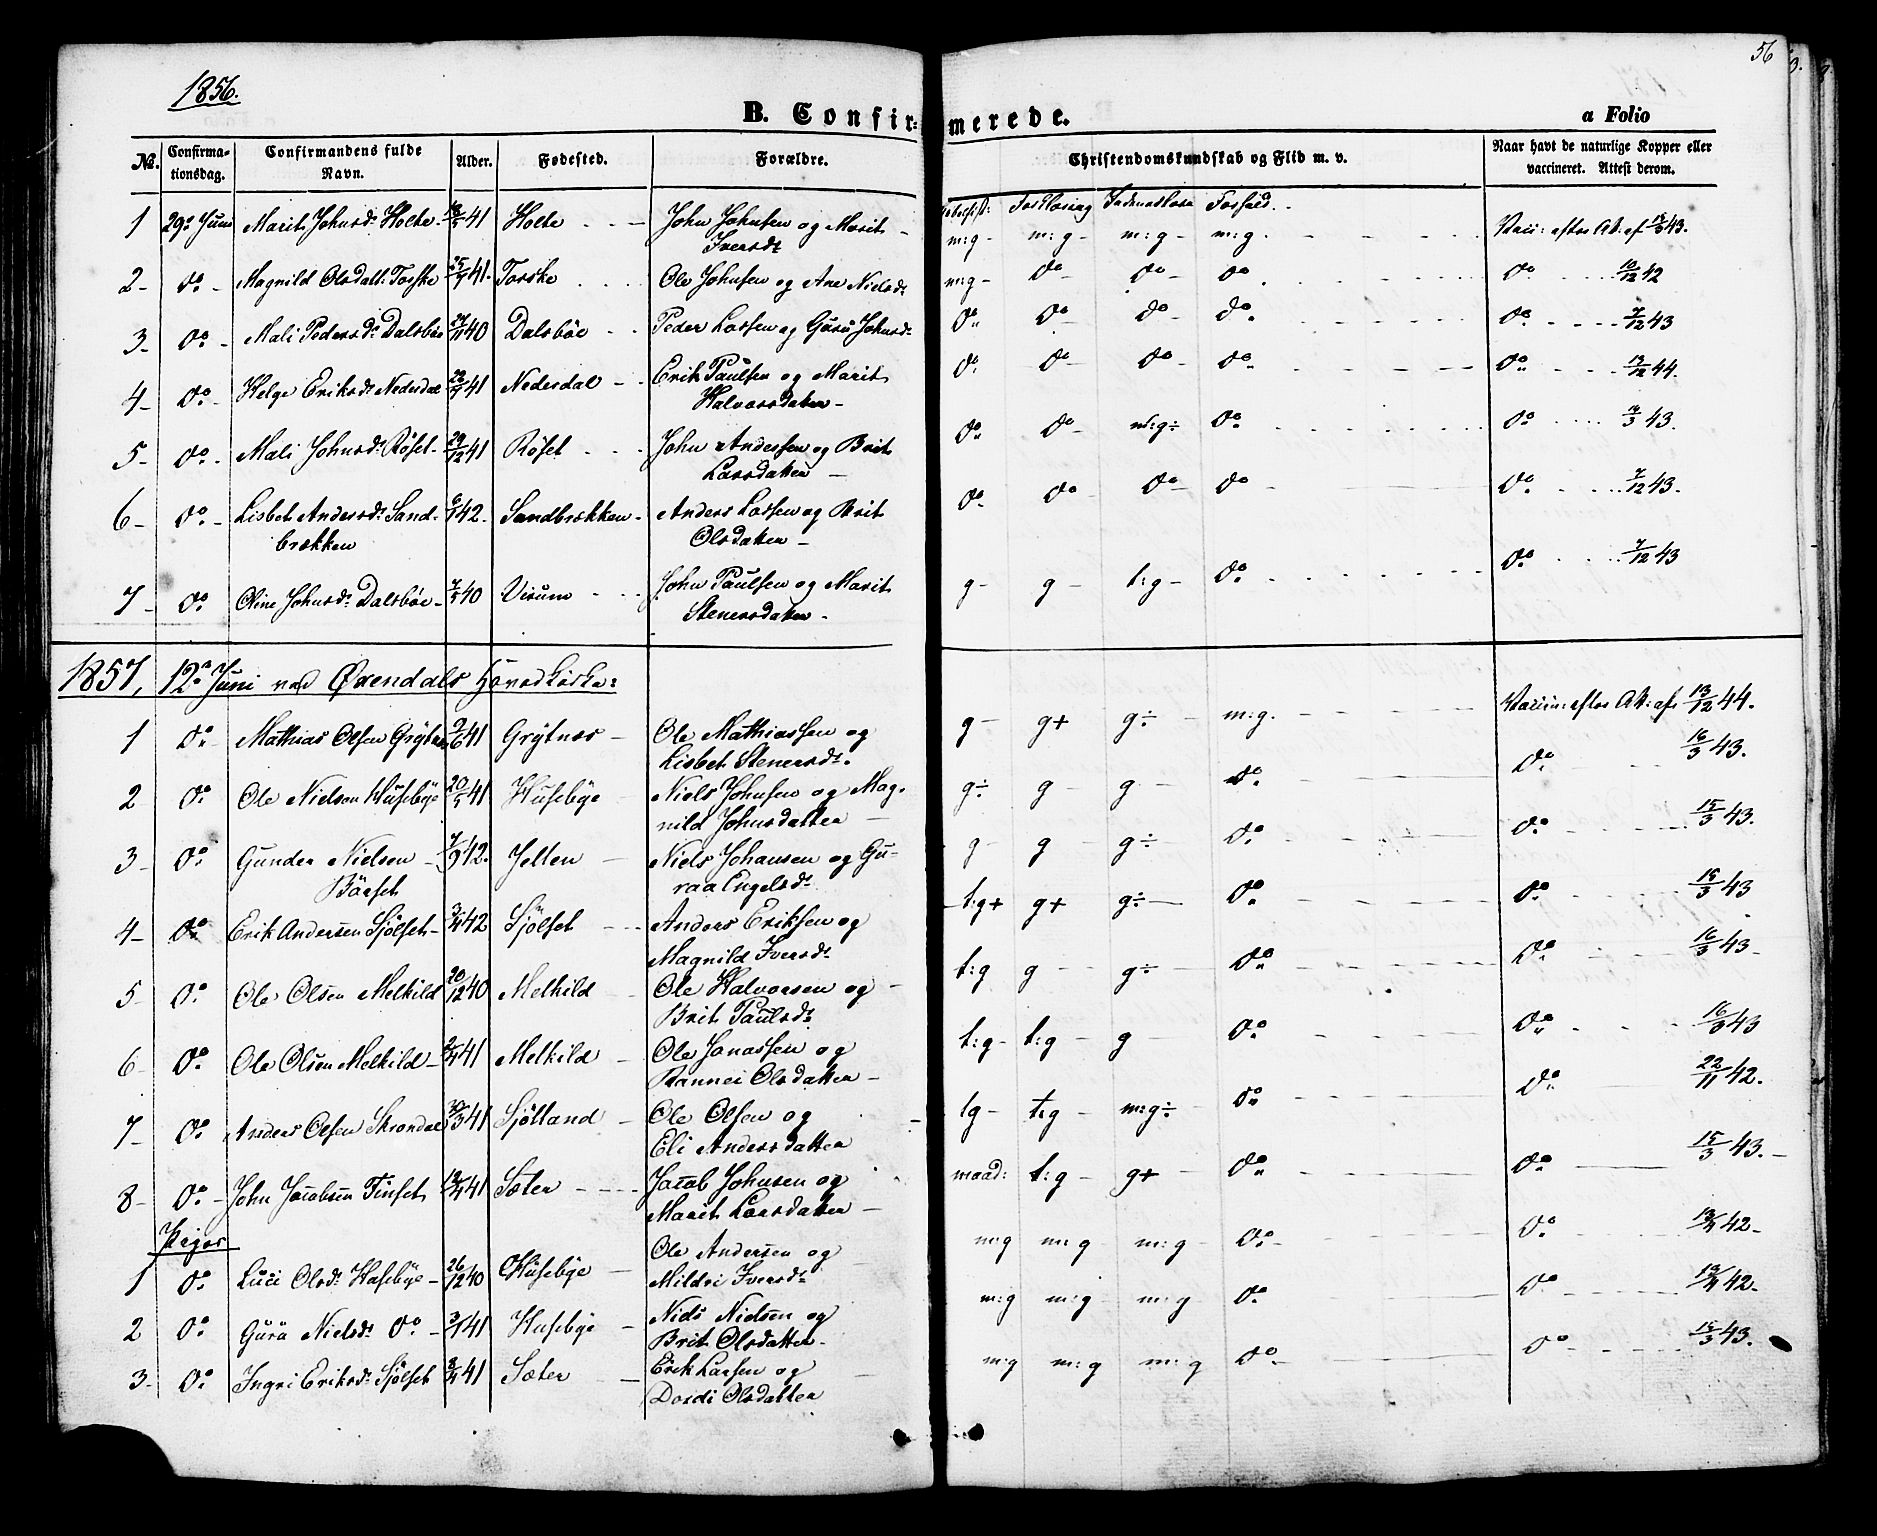 1856.
56
B. Confir=
merede.
a Folio
No.
Confirma-
tionsdag.
Confirmandens fulde
Navn.
Alder.
Fødested.
Forældre.
Christendomskundskab og Flid m. v.
Naar havt de naturlige Kopper eller
vaccineret. Attest derom.
1 29de Juni Marit Johnsd. Holte - 41 Holte - - John Johnsen og Marit -
Iversdr m:g - m:g - m:g - m:g. Vacc: efter At. af 43.
2 - do - Magnild Olsdatt: Torske 25/7 41. Torske Ole Johnsen og Ane Nielsdr m:g - do - do - do 10/12 42
3 - do - Mali Pedersdr Dalsbøe 40 Dalsbøe - - Peder Larsen og Guru Johnsdr do do - do - do. do. 7/12 43
4 - do - Helge Eriksdr Nedredal 41 Nedredal - - Erik Paulsen og Marit
Halvorsdatter - do do - do - do. do 13/12 44.
5 - do - Mali Johnsdr Røset - 29/12 41 Røset John Andersen og Brit
Larsdatter - do do - m:g÷ do. do 16/3 43.
6 - do - Lisbet Andersdr Sand- 42. Sandbrækken - Anders Larsen og Brit
brækken Olsdatter - do. do - do - do - do. 7/12 43.
7 - do - Oline Johnsdr Dalsbøe - 40 Virum John Paulsen og Marit
Stenersdatter - g - g - t:g - do. do. 7/12 43
1857, 12te Juni ved Øxendals Hovedkirke:
1 do Mathias Olsen Grytnes 2/6 41 Grytnes - Ole Mathiassen og
Lisbet Stenersdr. g - g+ g÷ - m:g. Vaccin: efter At: af 13/12 44.
2 do Ole Nielsen Husebye 20/5 41 Husebye Niels Johnsen og Mag-
nild Johnsdatter - g÷ g - g - do. do. 16/3 43.
3 - do Gunder Nielsen - 7/9 42. Jelten - Niels Johansen og Gu-
Børset raa Engelsdr g - g g÷ - do. do. 15/3 43.
4 - do Erik Andersen Sjölset - 3/4 42 Sjölset - - Anders Eriksen og
Magnild Iversdr t:g+ g+ g÷ - do. do. 15/3 43
5 - do Ole Olsen Melkild 20/12 40 Melkild - Ole Halvorsen og -
Brit Paulsdr t:g g - - g÷ do do. 16/3 43 -
6 - do Ole Olsen Melkild - 41 Melkild - Ole Jonassen og
Rannei Olsdatter - t:g - t:g - g - do. do - 16/3 43
7 - do Anders Olsen Skrondal 41 Sjölland - Ole Olsen og
Eli Andersdatter tg - t:g - m:g÷ do do. 22/11 42.
8 - do - John Jacobsen Finset 41 Sæter - - - Jacob Johnsen og
Marit Larsdatter - maad: t:g - g+ do do 15/3 43. -
Piger
1 do Luci Olsdr Husebye - 26/12 40 Husebye - Ole Andersen og
Mildri Iversdr m:g m:g m:g - do. - do 42 -
2 do Gura Nielsdr do - 41 Husebye - Niels Nielsen og
Brit Olsdatter - m:g m:g - m:g do. do 42 -
3 - do Ingri Eriksdr Sjölset 41 Sæter - Erik Larsen og
Dordi Olsdatter m:g m:g m:g do - do - 15/3 43.